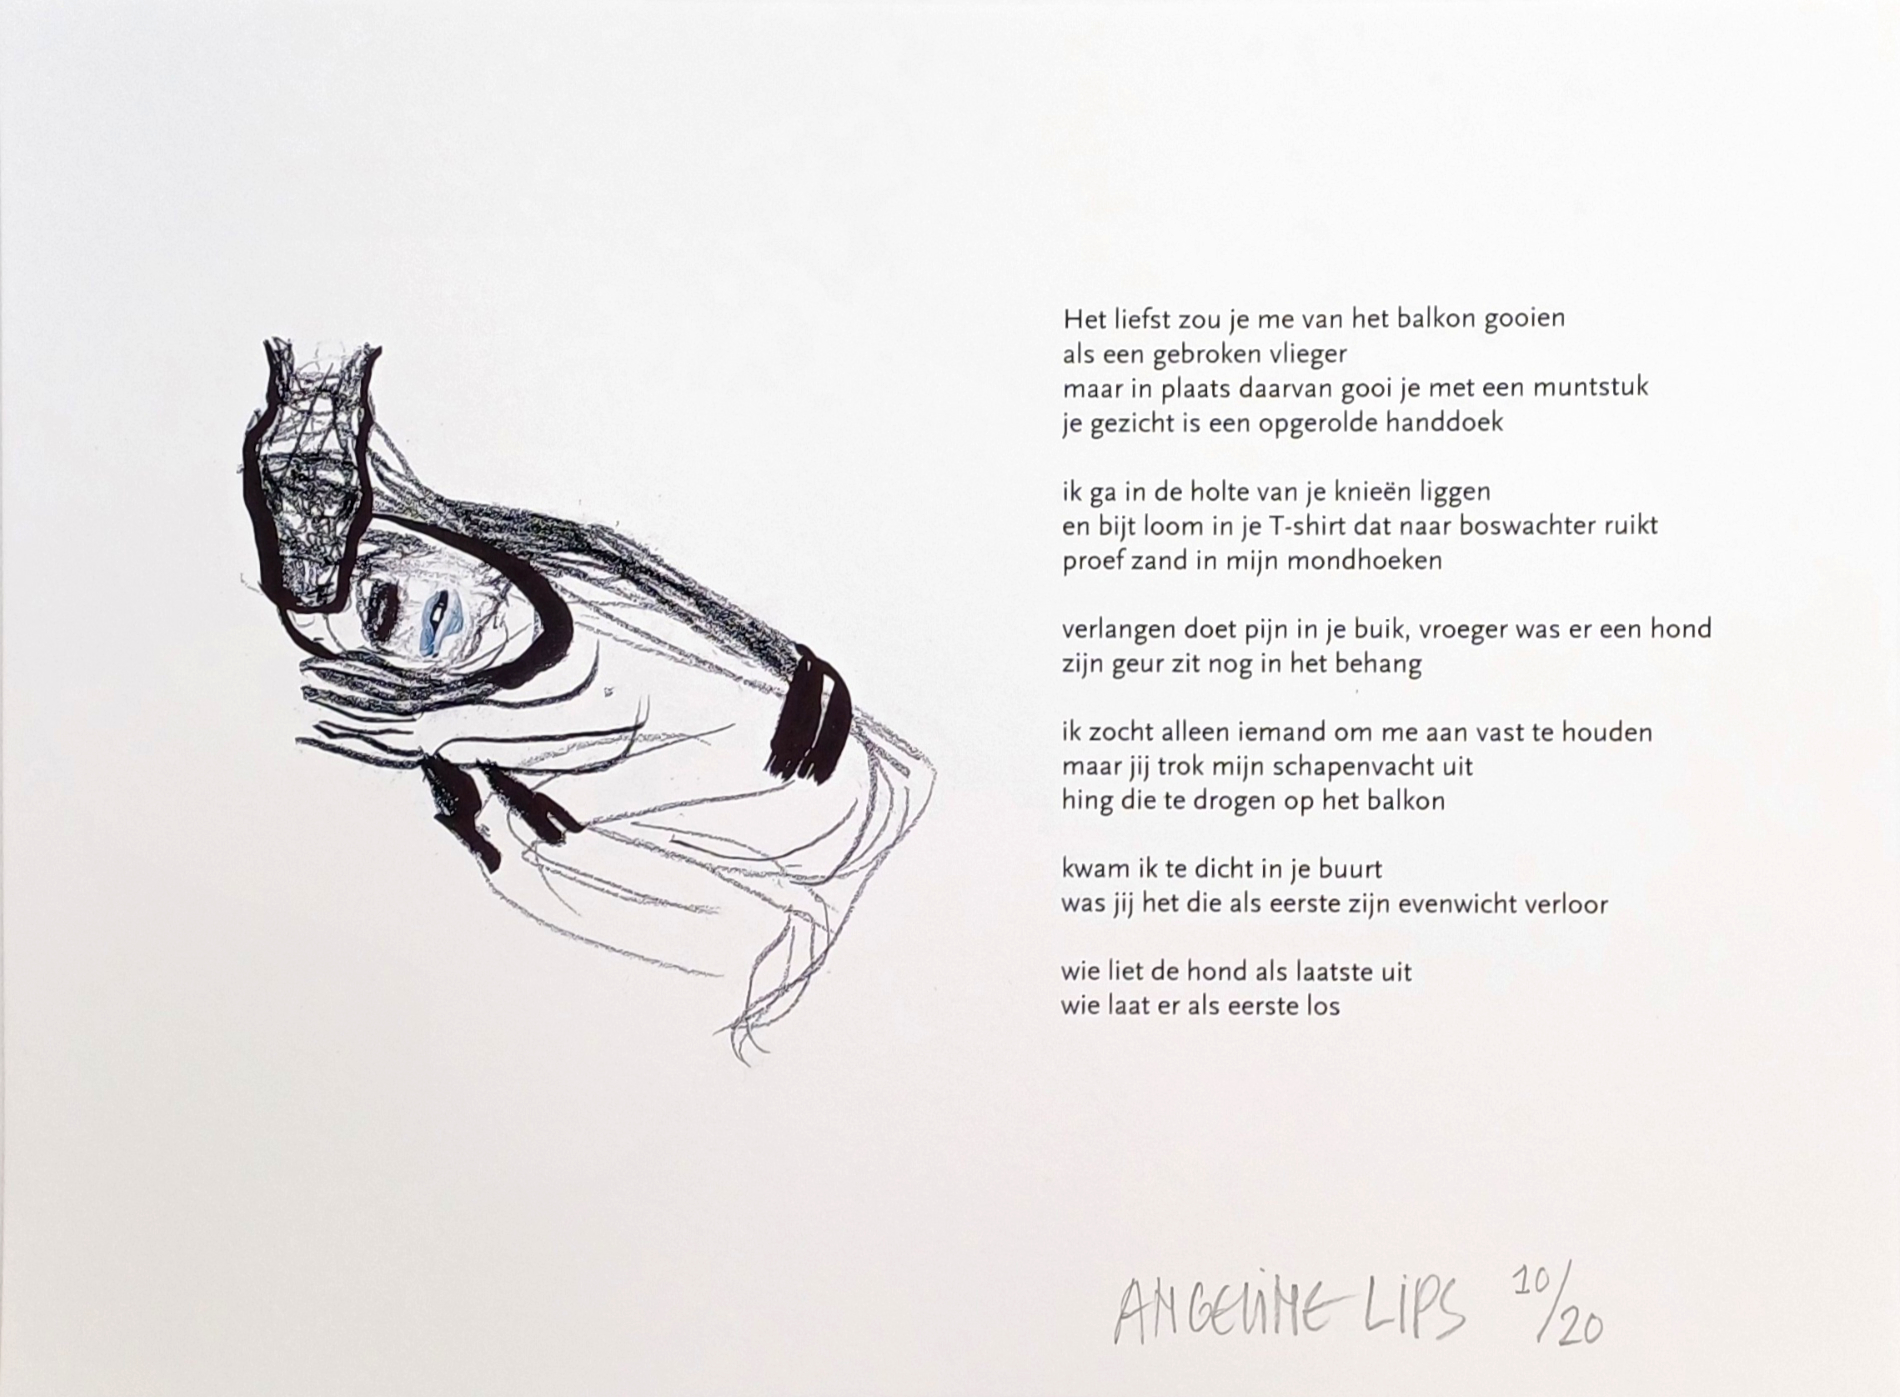 Het liefst zou je me van het balkon gooien
als een gebroken vlieger
maar in plaats daarvan gooi je met een muntstuk
je gezicht is een opgerolde handdoek
ik ga in de holte van je knieën liggen
en bijt loom in je T-shirt dat naar boswachter ruikt
proef zand in mijn mondhoeken
verlangen doet pijn in je buik, vroeger was er een hond
zijn geur zit nog in het behang
ik zocht alleen iemand om me aan vast te houden
maar jij trok mijn schapenvacht uit
hing die te drogen op het balkon
kwam ik te dicht in je buurt
was jij het die als eerste zijn evenwicht verloor
wie liet de hond als laatste uit
wie laat er als eerste los
ANGELINE LIPS 10/20